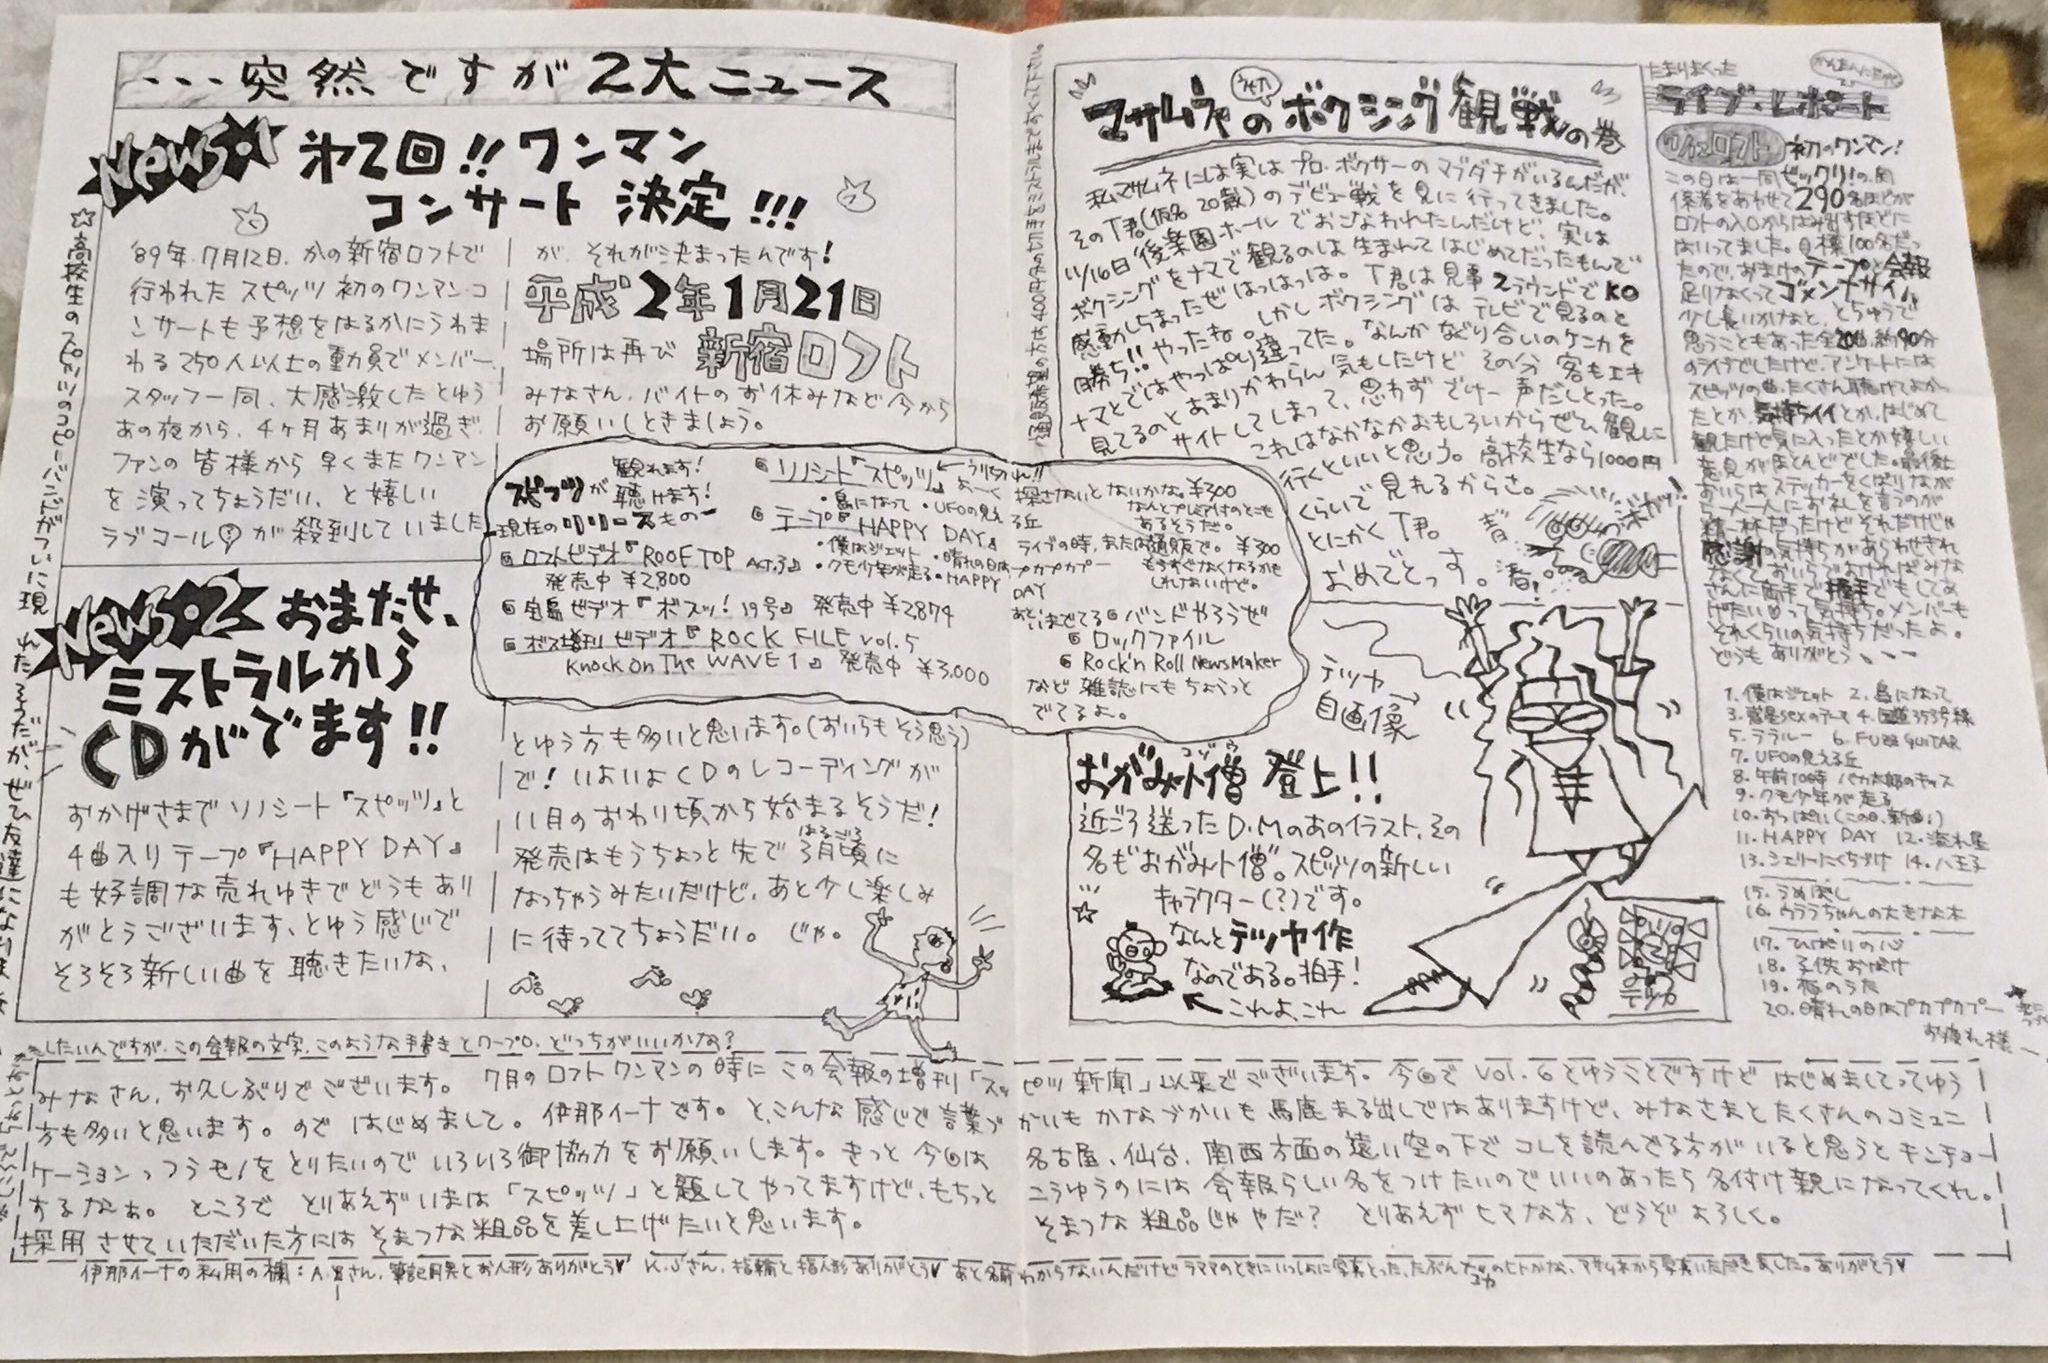 ・・・突然ですが2大ニュース
News・1
第2回!! ワンマン
コンサート 決定!!!
'89年、7月12日、かの新宿ロフトで
行われた スピッツ 初のワンマンコ
ンサートも予想をはるかにうわま
わる250人以上の動員でメンバー、
スタッフ一同、大感激したとゆう
あの夜から、4ヶ月あまりが過ぎ、
ファンの皆様から早くまたワンマン
を演ってちょうだい、と嬉しい
ラブコールが殺到していました
が、それが決まったんです!
平成2年1月21日
場所は再び 新宿ロフト
みなさん、バイトのお休みなど今から
お願いしときましょう。
☆高校生のスピッツのコピーバンドがついに現れたそうだが、ぜひ友達になりま
News・2
おまたせ、
ミストラルから
CDがでます!!
おかげさまでソノシート『スピッツ』と
4曲入りテープ『HAPPY DAY』
も好調な売れゆきでどうもあり
がとうございます、とゆう感じで
そろそろ新しい曲を聴きたいな、
とゆう方も多いと思います。(おいらもそう思う)
で! いよいよCDのレコーディングが
11月のおわり頃から始まるそうだ!
発売はもうちょっと先で3月頃に
はるごろ
なっちゃうみたいだけど、あと少し楽しみ
に待っててちょうだい。 じゃ。
スピッツが 観れます!
聴けます!
現在のリリースもの
ロフトビデオ『ROOF TOP ACT.3』
発売中 ¥2800
宝島ビデオ『ボスッ! 19号』 発売中 ¥2874
ボス増刊ビデオ『ROCK FILE VOL.5
Knock On The WAVE 1』 発売中 ¥3,000
ソノシート『スピッツ』←うりきれ!!
・鳥になって ・UFOの見える丘
よーく探さないとないかな。¥300
なんとプレミアがつけのとこも
あるそうだ。
テープ『HAPPY DAY』
・僕はジェット ・晴れの日はプカプカプー
・クモ少年が走る ・HAPPY DAY
ライブの時、または通販で。¥300
もうすぐなくなるかも
しれないけど。
あといまでてる バンドやろうぜ
ロックファイル
Rock'n Roll NewsMaker
など 雑誌にもちょろっと
でてるよ。
マサムネの初ボクシング観戦の巻
私マサムネには実はプロ・ボクサーのマブダチがいるんだが、
そのT君(仮名 20歳)のデビュー戦を見に行ってきました。
11/16日 後楽園ホールでおこなわれたんだけど、実は
ボクシングをナマで観るのは生まれてはじめてだったもんで
感動しちまったぜはっはっは。T君は見事2ラウンドでKO
勝ち!! やったね。しかしボクシングはテレビで見るのと
ナマとではやっぱり違ってた。なんかなぐり合いのケンカを
見てるのとあまりかわらん気もしたけどその分 客もエキ
サイトしてしまって、思わずでけー声だしとった。
これはなかなかおもしろいからぜひ観に
行くといいと思う。高校生なら1000円
くらいで見れるからさ。
とにかくT君
おめでとっす。
テツヤ
自画像
おがみ小僧 登上!!
コゾウ
近ごろ送ったD.Mのあのイラスト、その
名も“おがみ小僧”。スピッツの新しい
キャラクター(?)です。
なんとテツヤ作
なのである。拍手!
これよ、これ
たまりまくった
ライブ・レポート
7/12ロフト 初のワンマン!
この日は一同ビックリ!の、関
係者をあわせて290名ほどが
ロフトの入口からはみ出すほどに
はいってました。目標100名だっ
たので、おまけのテープと会報
足りなくってゴメンナサイ!
少し長いかなと、とちゅうで
思うこともあった全20曲、約90分
のライブでしたけど、アンケートには
スピッツの曲、たくさん聴けてよかっ
たとか、気持ちイイとか、はじめて
観たけど気に入ったとか嬉しい
意見がほとんどでした。最後に
おいらはステッカーをくばりなが
ら一人一人にお礼を言うのが
精一杯だったけどそれだけじゃ
感謝の気持ちがあらわせきれ
なくておいらでおければみな
さんに両手で握手でもしてあ
げたいって気持ち。メンバーも
それくらいの気持ちだったよ。
どうもありがとう、、、
1. 僕はジェット 2. 鳥になって
3. 惑星SEXのテーマ 4. 国道353号線
5. ララルー 6. FUZZ GUITAR
7. UFOの見える丘
8. 午前10時 バカ太郎のキッス
9. クモ少年が走る
10. おっぱい(この日、新曲!)
11. HAPPY DAY 12. 流れ星
13. シェリーにくちづけ 14. 八王子
15. うめぼし
16. ウララちゃんの大きな木
17. ひばりの心
18. 子供おばけ
19. 死のうた
20. 晴れの日はプカプカプー
お疲れ様ー
したいんですが、この会報の文字、このような手書きとワープロ、どっちがいいかな?
みなさん、お久しぶりでございます。 7月のロフトワンマンの時にこの会報の増刊「スッピツ新聞」以来でございます。今回でVol.6とゆうことですけどはじめましてってゆう
方も多いと思います。のではじめまして。伊那イーナです。と、こんな感じで言葉づかいもかなづかいも馬鹿まる出しではありますけど、みなさまとたくさんのコミュニ
ケーションっつうモノをとりたいのでいろいろ御協力をお願いします。きっと今回は名古屋、仙台、関西方面の遠い空の下でコレを読んでる方がいると思うとキンチョー
するなぁ。 ところで とりあえずいまは「スピッツ」と題してやってますけど、もちっとこうゆうのには会報らしい名をつけたいのでいいのあったら名付け親になってくれ。
採用させていただいた方にはそまつな粗品を差し上げたいと思います。 そまつな粗品じゃやだ? とりあえずヒマな方、どうぞよろしく。
伊那イーナの私用の欄:A.Yさん、筆記用具とお人形ありがとう♥ K.Jさん、指輪と指人形ありがとう♥ あと名前わからないんだけどラママのときにいっしょに写真とった、たぶんのヒトかな、マサムネから写真いただきました。ありがとう♥